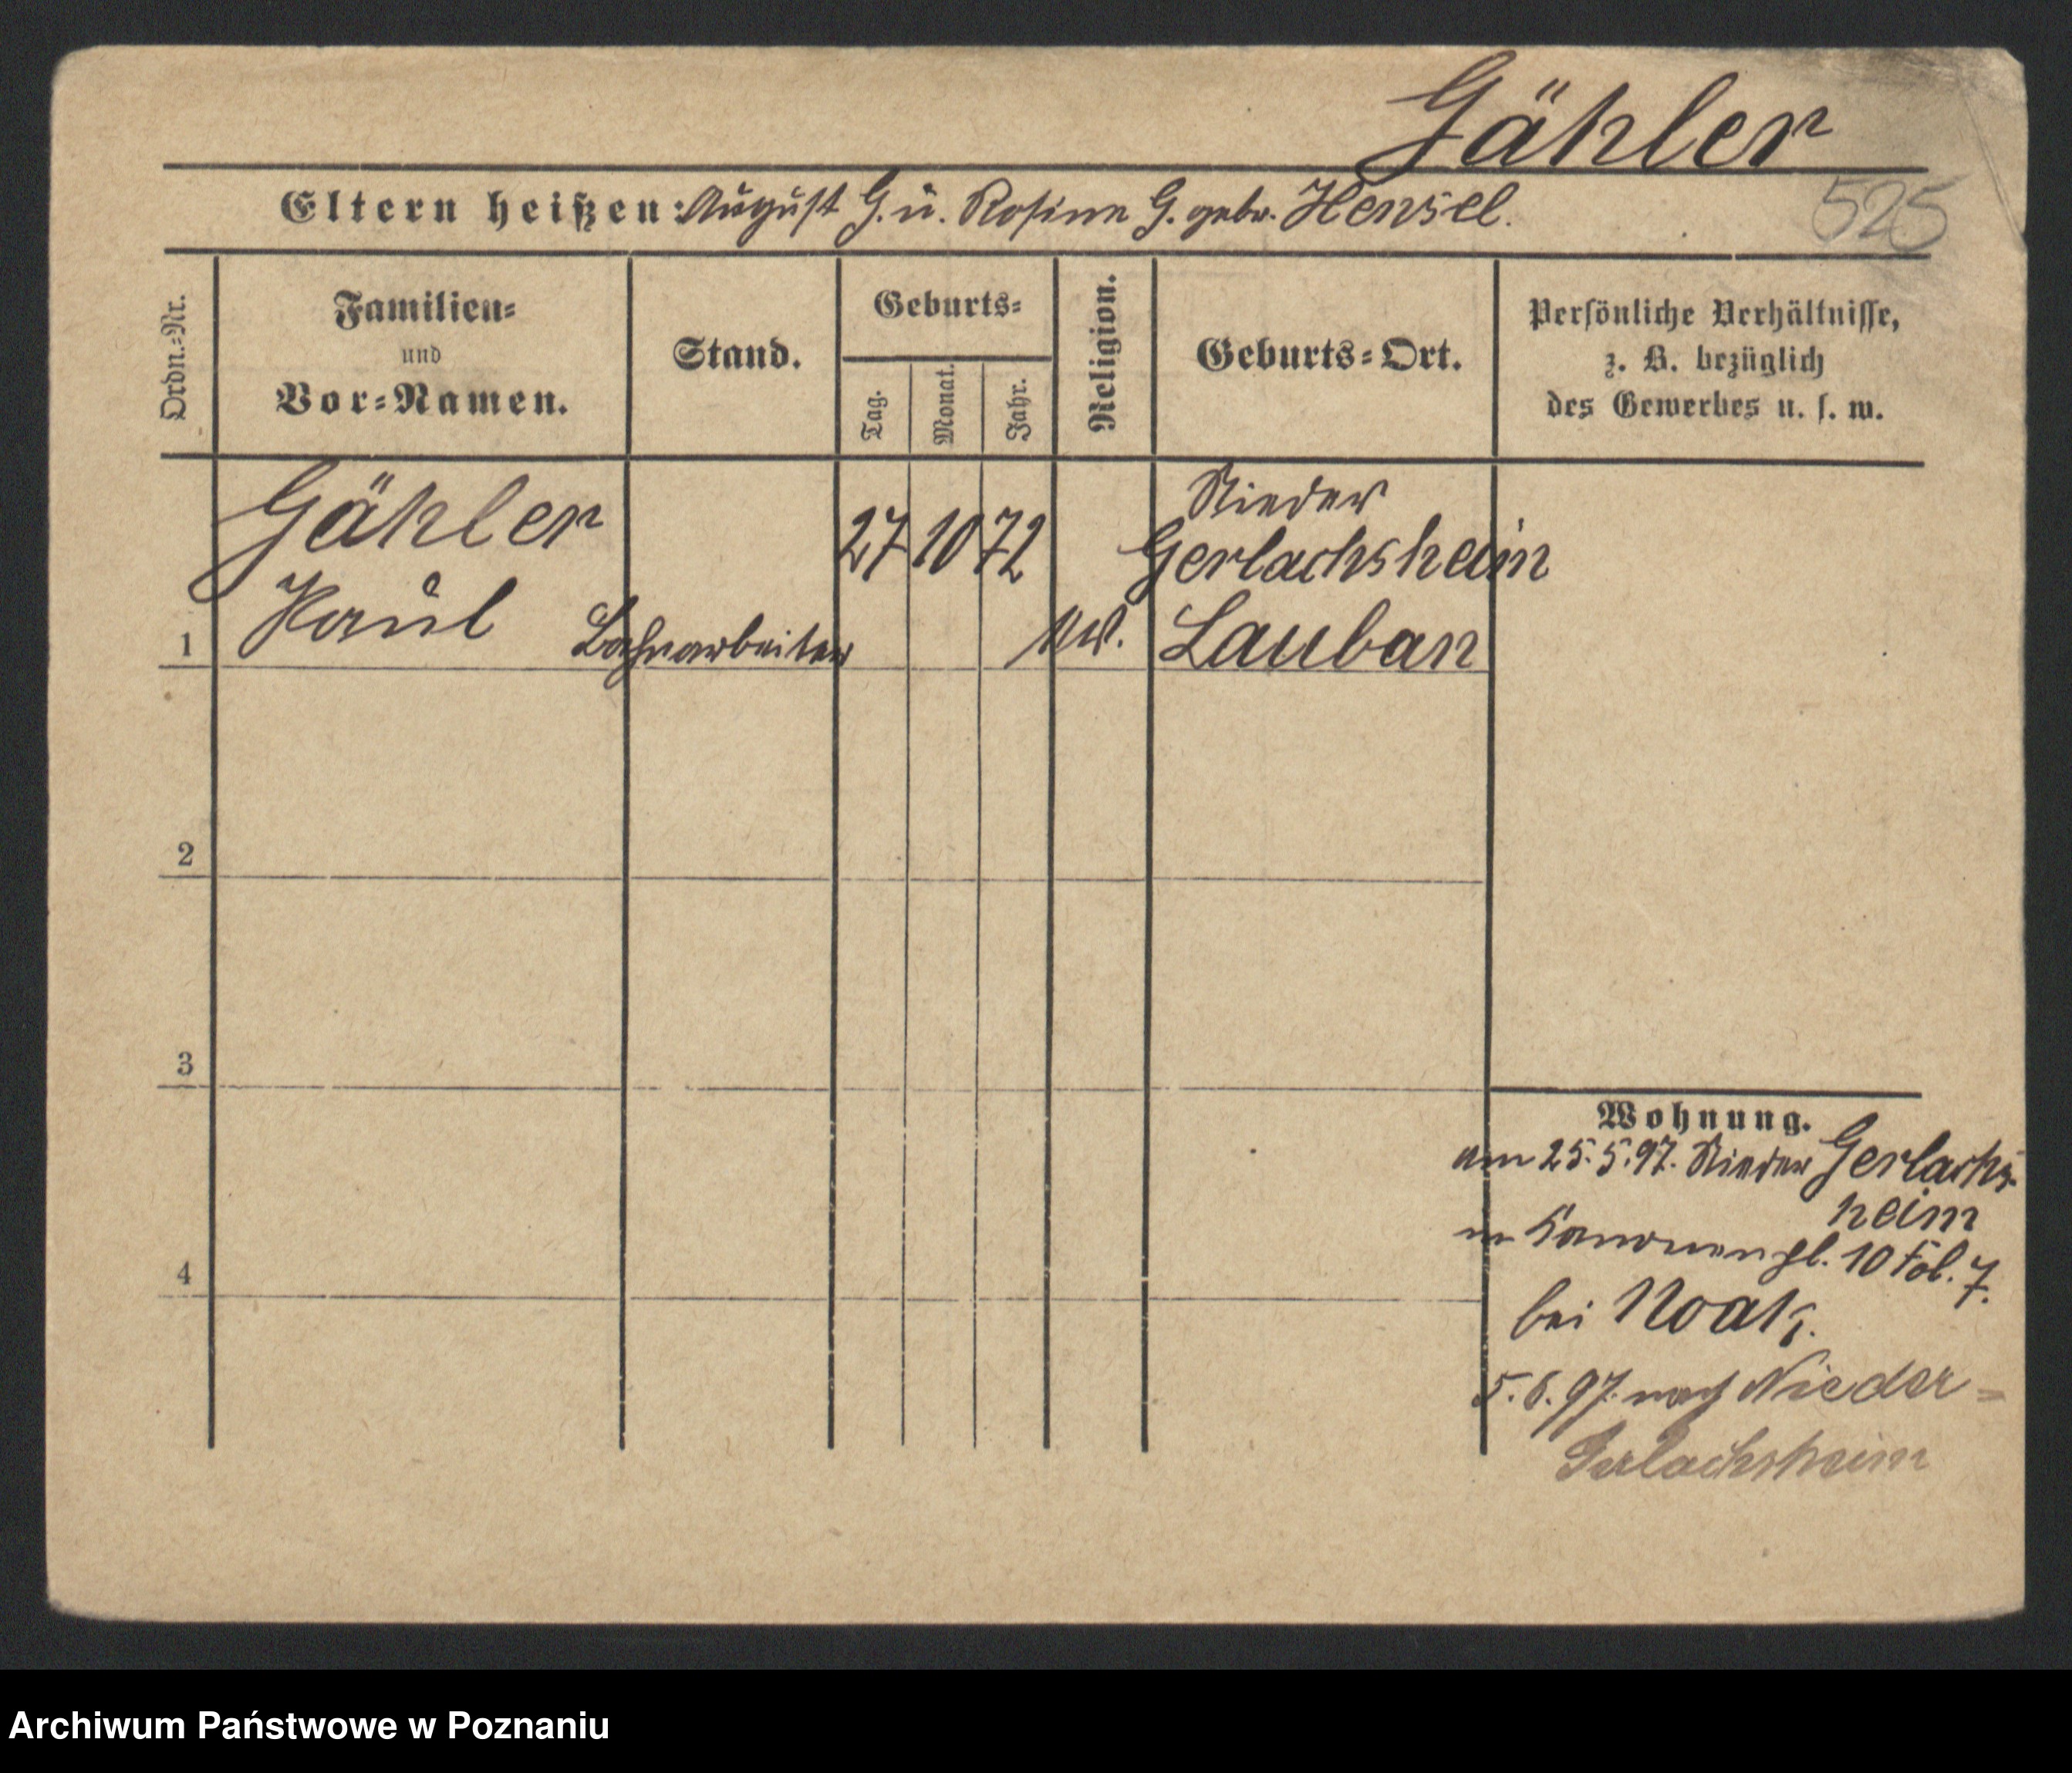 Gähler
525
Eltern heißen: August G. u. Rosine G. gebr. Hensel.
Ordn.-Nr.
Familien-
und
Vor-Namen.
Stand.
Geburts-
Tag.
Monat.
Jahr.
Religion.
Geburts-Ort.
Persönliche Verhältnisse,
z. B. bezüglich
des Gewerbes u. s. w.
1
Gähler
Paul
Bahnarbeiter
27 10 72
Nieder
Gerlachsheim
Lauban
2
3
4
Wohnung.
am 25.5.97. Nieder Gerlachs-
heim
in Kanonenpl. 10 Fol. 7.
bei Noak.
5.6.97. nach Nieder-
Gerlachsheim
Archiwum Państwowe w Poznaniu